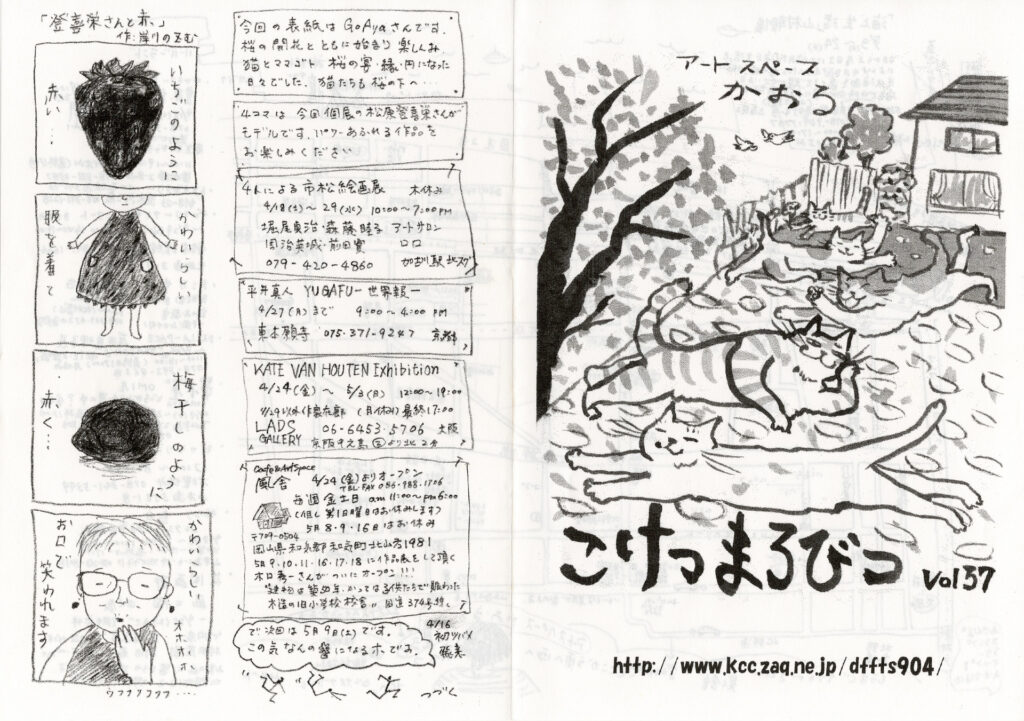 「登喜栄さんと赤」
いちごのように
赤い…
かわいらしい
服を着て
梅干しのよう
に
赤く…
かわいらしい
お口で
笑われます
オホホホ
ウフフフフフフ…
今回の表紙は GoAyaさんです。
桜の開花とともに始まり 楽しんみ
猫とママゴト 桜の宴・縁・円になった
日々でした。猫たちも桜の下へ…
4コマは 今回個展の松原登喜栄さんが
モデルです。パワーあふれる作品を
お楽しみください
4人による市松絵画展 木休み
4/18(土)～29(水) 10:00～7:00PM
堀尾貞治・森藤晴子 アートサロン
・前田實
079-420-4860 加古川駅北スグ
平井真人 YUGAFU-世界報-
4/27(月)まで 9:00～4:00PM
東本願寺 075-371-9247 京都
KATE VAN HOUTEN Exhibition
4/24(金)～5/3(日) 12:00～19:00
(月休み) 最終17:00
LADS 06-6453-5706 大阪
GALLERY
Cafe&ArtSpace
風舎 4/24(金)よりオープン
TEL FAX 086-988-1706
毎週金土日 am11:00～pm6:00
(但し第1日曜はお休みします)
5月8・9・16日はお休み
〒709-0504
岡山県和気郡和気町北山方1981
5月9・10・11・16・17・18に作品展をして頂く
さんがついにオープン!!!
建物は築 年、かつては子供たちで賑わった
木造の旧小学校校舎。国道374号沿。
で次回は5月9日(土)です。
この気なんの葉になるホです。
4/16
初ツバメ
つづく
アートスペース
かおる
こけつまろびつ
Vol37
http://www.kcc.zaq.ne.jp/dfffs904/